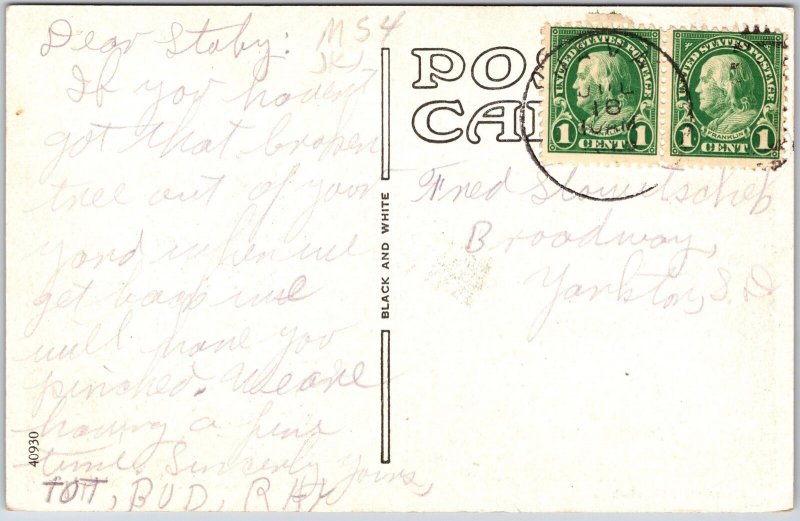 Dear Slaby:
MS4
If you haven't
got that broken
tree out of your
yard when we
get back we
will have you
pinched. We are
having a fine
time. Sincerely yours,
TOTT, BUD, RAY
40930
BLACK AND WHITE
PO
CA
UNITED STATES POSTAGE
1 CENT 1
UNITED STATES POSTAGE
FRANKLIN
1 CENT 1
JUL
18
Fred
Broadway,
Yankton, S.D